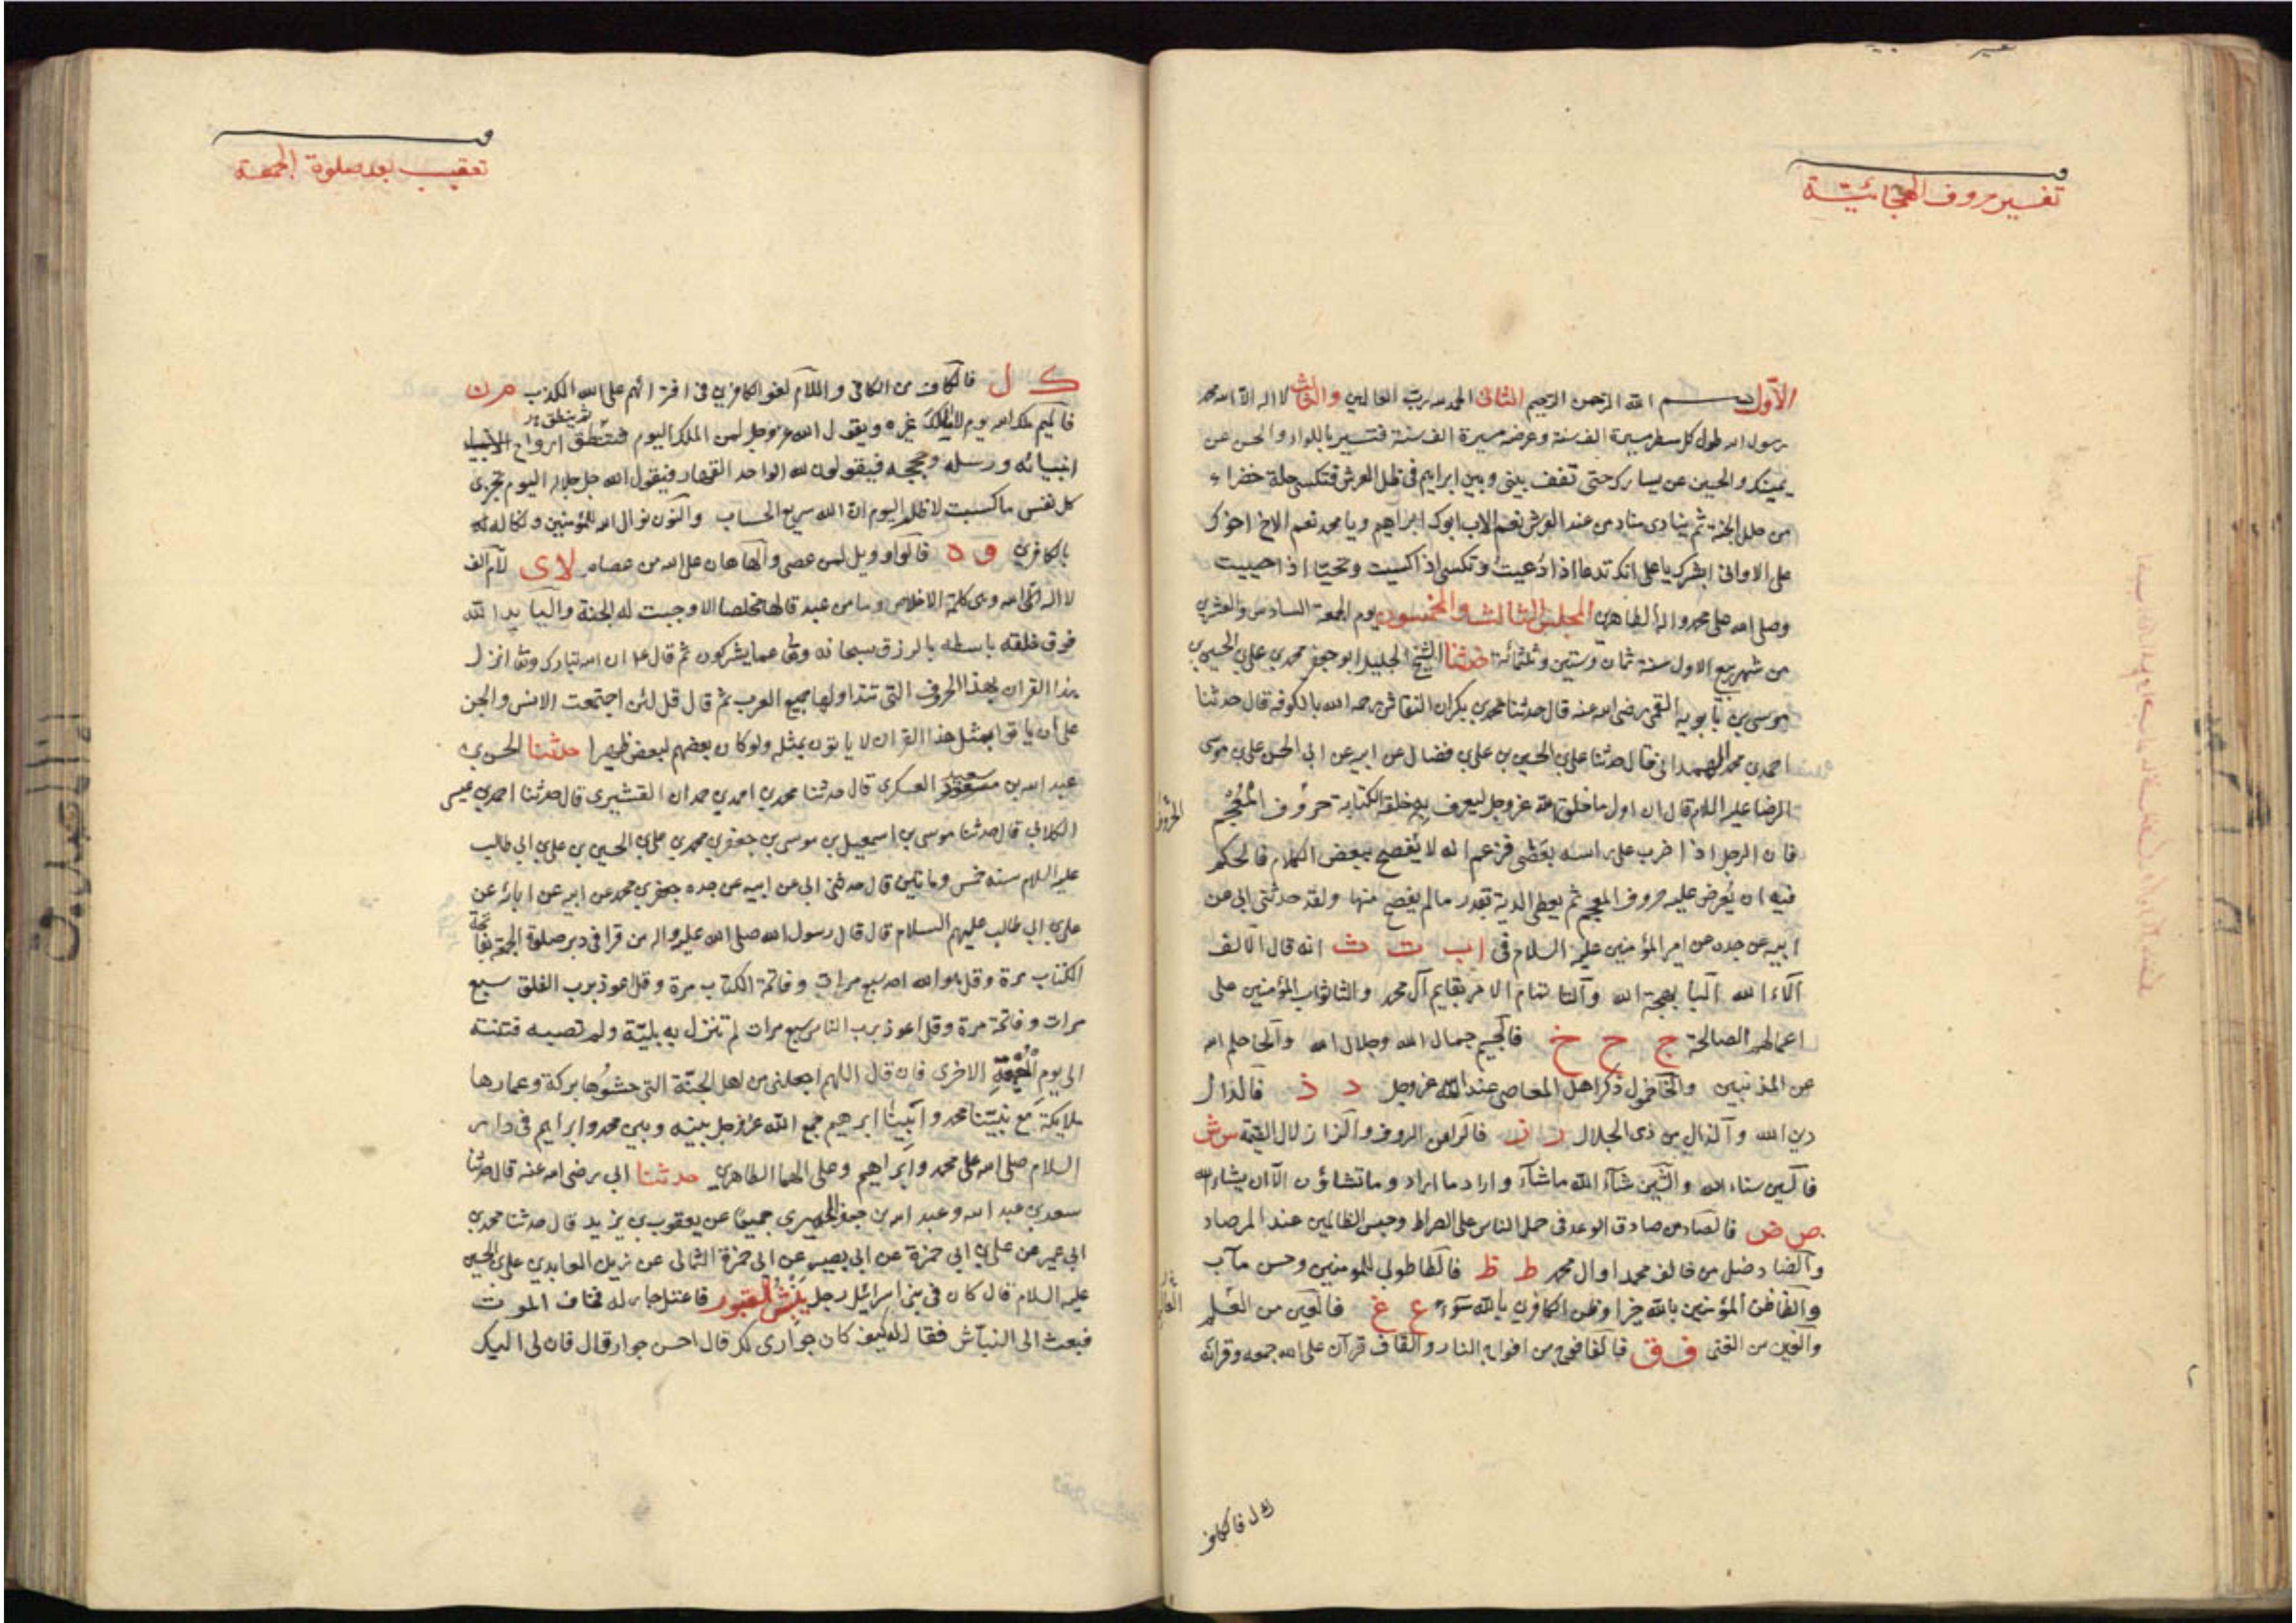 تفسير حروف الهجائيّة
الأول بسم الله الرحمن الرحيم الثانى الحمد لله رب العالمين والثالث لا اله الا الله محمد
رسول الله طول كل سطر مسيرة الف سنة وعرضه مسيرة الف سنة فتسير باللواء والحسن عن
يمينك والحسين عن يسارك حتى تقف بينى وبين ابراهيم فى ظل العرش فتكسى حلة خضراء
من حلل الجنة ثم ينادى مناد من عند العرش نعم الاب ابوك ابراهيم ويا محمد نعم الاخ اخوك
على الاوانى ابشرك يا على انك تدعا اذا دُعيتُ وتكسى اذا كسيت وتحيّا اذا حييت
وصلى الله على محمد واله الطاهرين المجلس الثالث والخمسون يوم الجمعة السادس والعشرين
من شهر ربيع الاول سنة ثمان وستين وثلثمائة حدثنا الشيخ الجليل ابو جعفر محمد بن على بن الحسين بن
موسى بن بابويه القمى رضى الله عنه قال حدثنا محمد بن بكران النقاش رحمه الله بالكوفة قال حدثنا
احمد بن محمد الهمدانى قال حدثنا على بن الحسين بن على بن فضال عن ابيه عن ابى الحسن على بن موسى
الرضا عليه السلام قال ان اول ما خلق الله عز وجل ليعرف به خلقه الكتابة حروف المُعْجَم
فان الرجل اذا ضرب على راسه بعَصًى فزعم انه لا يُفصح ببعض الكلام فالحكم
فيه ان يُعرض عليه حروف المعجم ثم يعطى الدية بقدر ما لم يفصح منها ولقد حدثنى ابى عن
ابيه عن جده عن امير المؤمنين عليه السلام فى اب ت ث انه قال الالف
آلاء الله البا بهجة الله والتا تمام الامر بقايم آل محمد والثا ثواب المؤمنين على
اعمالهم الصالحة ج ح خ فالجيم جمال الله وجلال الله والحا حلم الله
عن المذنبين والخا خمول ذكر اهل المعاصى عند الله عز وجل د ذ فالدال
دين الله والذال من ذى الجلال ر ز فالرا من الروف والزا زلازل القيمة س ش
فالسين سناء الله والشين شآء الله ما شآء واراد ما اراد وما تشاؤن الا ان يشاء الله
ص ض فالصاد من صادق الوعد فى حمل الناس على الصراط وحبس الظالمين عند المرصاد
والضاد ضل من خالف محمدا وال محمد ط ظ فالطا طوبى للمومنين وحسن مآب
والظا ظن المؤمنين بالله خيرا وظن الكافرين بالله سوء ع غ فالعين من العلم
والغين من الغنى ف ق فالفا فوج من افواج النار والقاف قرآن على الله جمعه وقرانه
ك ل فالكاف
تعقيب بعد صلوة الجمعة
ك ل فالكاف من الكافى واللام لغو الكافرين فى افترائهم على الله الكذب م ن
فالميم ملك الله يوم لا مالك غيره ويقول الله عز وجل لمن الملك اليوم ثم ينطق ارواح
انبيائه ورسله وحججه فيقولون لله الواحد القهار فيقول الله جل جلاله اليوم تجزى
كل نفس ما كسبت لا ظلم اليوم ان الله سريع الحساب والنون نوال الله للمؤمنين ونكاله
بالكافرين و ه فالواو ويل لمن عصى والها هان على الله من عصاه لا ى لام الف
لا اله الا الله وهى كلمة الاخلاص وما من عبد قالها مخلصا الا وجبت له الجنة واليا يد الله
فوق خلقه باسطه بالرزق سبحانه وتعا عما يشركون ثم قال ع ان الله تبارك وتعا انزل
هذا القران بهذا الحروف التى تتداولها جميع العرب ثم قال قل لئن اجتمعت الانس والجن
على ان ياتوا بمثل هذا القران لا ياتون بمثله ولو كان بعضهم لبعض ظهيرا حدثنا الحسن بن
عبد الله بن سعيد العسكرى قال حدثنا محمد بن احمد بن حمدان القشيرى قال حدثنا احمد بن عيسى
الكلابى قال حدثنا موسى بن اسمعيل بن موسى بن جعفر بن محمد بن على بن الحسين بن على بن ابى طالب
عليه السلام سنه خمس وماتين قال حدثنى ابى عن ابيه عن جده جعفر بن محمد عن ابيه عن ابائه عن
على بن ابى طالب عليهم السلام قال قال رسول الله صلى الله عليه واله من قرا فى دبر صلوة الجمعة بفاتحة
الكتاب مرة وقل هو الله احد سبع مرات وفاتحة الكتاب مرة وقل اعوذ برب الفلق سبع
مرات وفاتحة مرة وقل اعوذ برب الناس سبع مرات لم تنزل به بليّة ولم تصبه فتنة
الى يوم الجمعة الاخرى فان قال اللهم اجعلنى من اهل الجنّة التى حشوُها بركة وعمارها
ملايكة مع نبيّنا محمد وابينا ابرهيم جمع الله عز وجل بينه وبين محمد وابراهيم فى دار
السلام صلى الله على محمد وابراهيم وعلى الهما الطاهرين حدثنا ابى رضى الله عنه قال حدثنا
سعد بن عبد الله وعبد الله بن جعفر الحميرى جميعًا عن يعقوب بن يزيد قال حدثنا محمد بن
ابى عمير عن على بن ابى حمزة عن ابى بصير عن ابى حمزة الثمالى عن زين العابدين على بن الحسين
عليه السلام قال كان فى بنى اسرائيل رجل ينْبُشُ القبور فاعتل جار له فخاف الموت
فبعث الى النبّاش فقال له كيف كان جوارى لك قال احسن جوار قال فان لى اليك